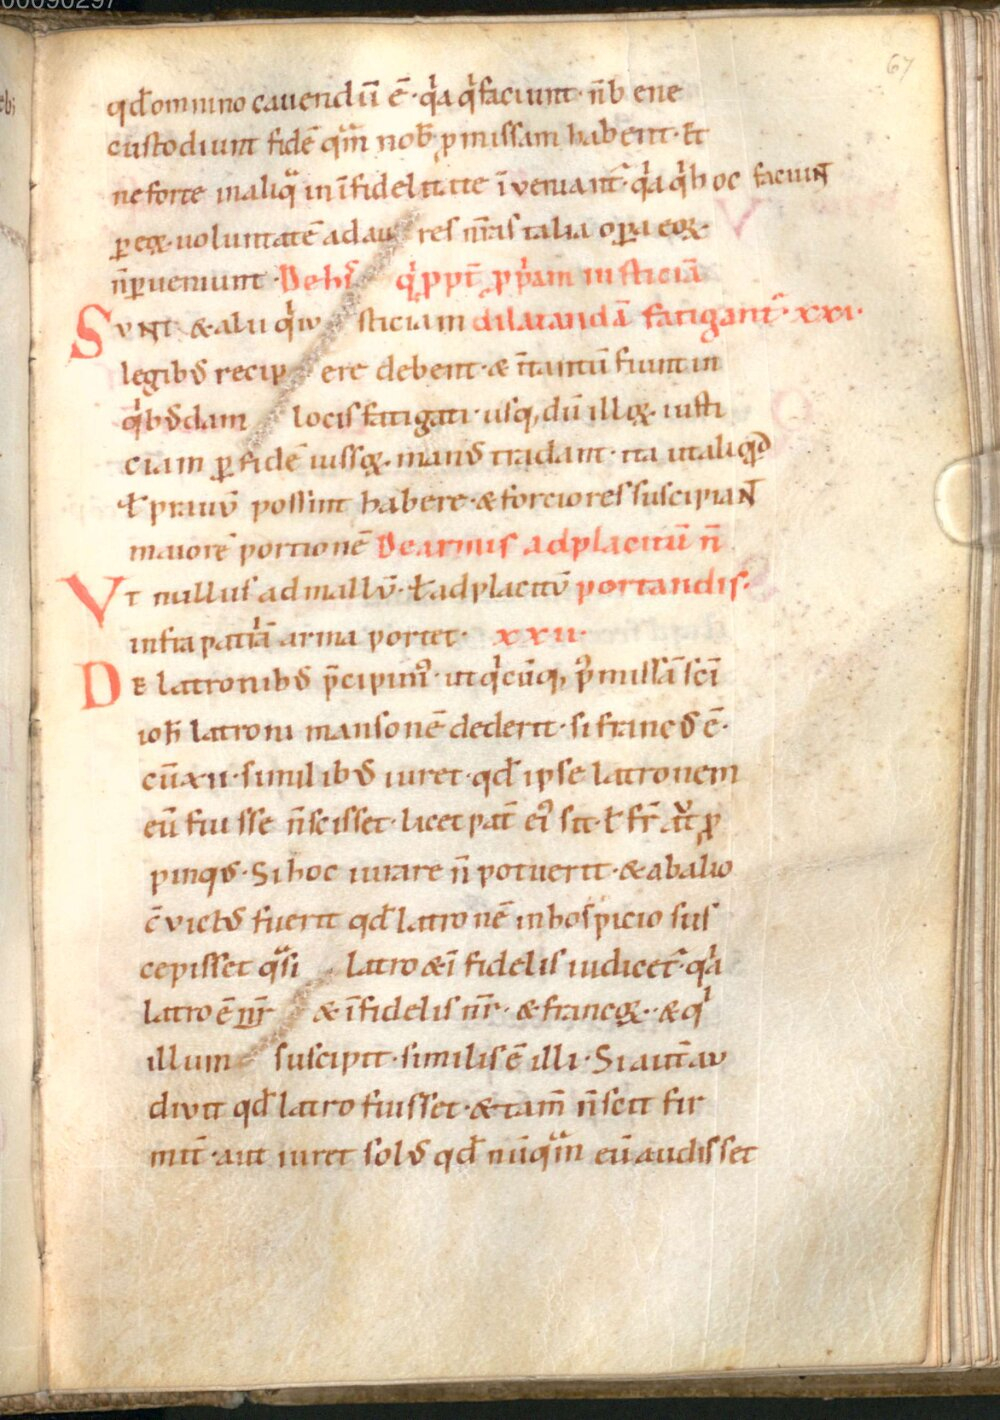 00090297
67
qđ omnino cauendū ē · qͥa qͥ faciunt · n̄ b ene
custodiunt fidē qͣm nob̄ ꝓmissam habent · Et
ne forte in aliqͦ in īfidelitate īveniant᷑ · qͥa qͥ hoc faciunt
ꝑ eoꝝ · uoluntatē ad au res n̄ras talia opera eoꝝ ·
n̄ ꝑueniunt · De his qͥ ꝓpt̄ ꝓpͥam iusticiā
Sunt & alii qͥ iu sticiam dilatandā fatigant᷑ · xxi ·
legibꝰ recip ere debent · & n̄ tantū fiunt in
qͥbꝰdam locis fatigati · usq, dū illoꝝ · iusti
ciam ꝑ fidē iussoꝝ · manꝰ tradant · ita ut aliqđ
ł prauū possint habere · & forciores suscipiant
maiorē portionē De armis ad placitū n̄
Vt nullus ad mallū · ł ad placitū portandis ·
infra patͥā arma portet · xxii ·
De latronibꝰ p̄cipim᷒ · ut qͥcūq, p᷒ missā sc̄i
ioh̄ latroni mansonē dederit · si francꝰ ē ·
cū xii · similibꝰ iuret · qđ ipse latronem
eū fiu sse n̄ scisset · licet pat̄ ei᷒ sit · ł fr̄ aͧt ꝓ
pinqꝰ · Si hoc iurare n̄ potuerit · & ab alio
c̄victꝰ fuerit qđ latronē in hospicio sus
cepisset qͣsi latro & ī fidelis iudicet᷑ · qͥa
latro ē nr̄ & īfidelis nr̄ · & francoꝝ · & qͥ
illum suscipit · similis ē illi · Si aut̄ au
divit qđ latro fiusset · & tam̄ n̄ scit fir
mit̄ · aut iuret solꝰ qđ nūqͣm eū audisset